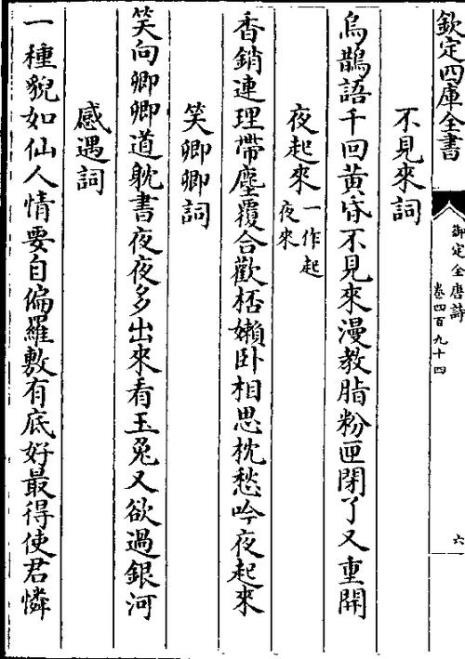 欽定四庫全書
御定全唐詩
卷四百九十四
六
不見來詞
烏鵲語千回黄昏不見來漫教脂粉匣閉了又重開
夜起來一作起夜來
香銷連理帶塵覆合歡桮嬾卧相思枕愁吟夜起來
笑卿卿詞
笑向卿卿道躭書夜夜多出來看玉兔又欲過銀河
感遇詞
一種貌如仙人情要自偏羅敷有底好最得使君憐